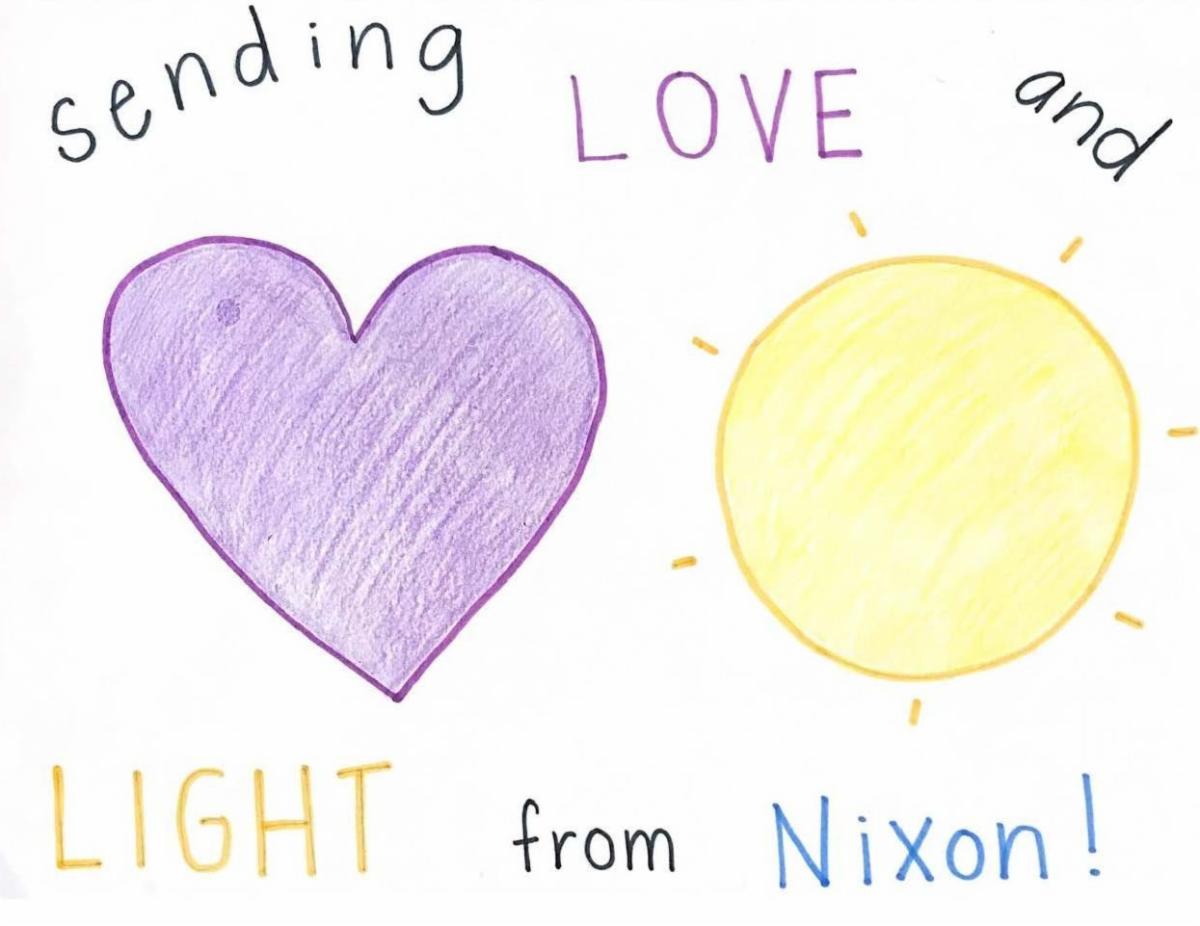 sending LOVE and
LIGHT from Nixon!